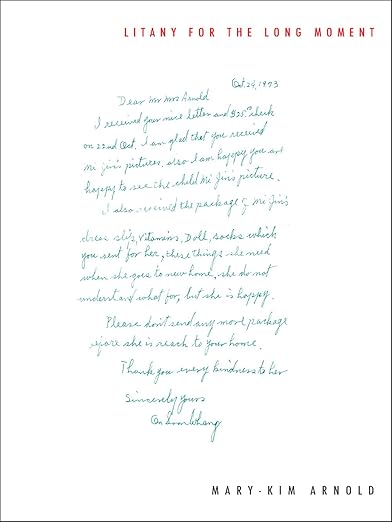 LITANY FOR THE LONG MOMENT
Oct. 24, 1973
Dear Mr Mrs Arnold
I received your nice letter and $25.00 check
on 22nd Oct. I am glad that you received
Mi Jin's pictures, also I am happy you are
happy to see the child Mi Jin's picture.
I also received the package of Mi Jin's
dress slip, Vitamins, Doll, socks which
you sent for her, these things she need
when she goes to new home, she do not
understand what for, but she is happy.
Please don't send any more package
before she is reach to your home.
Thank you every kindness to her
Sincerely yours
MARY-KIM ARNOLD